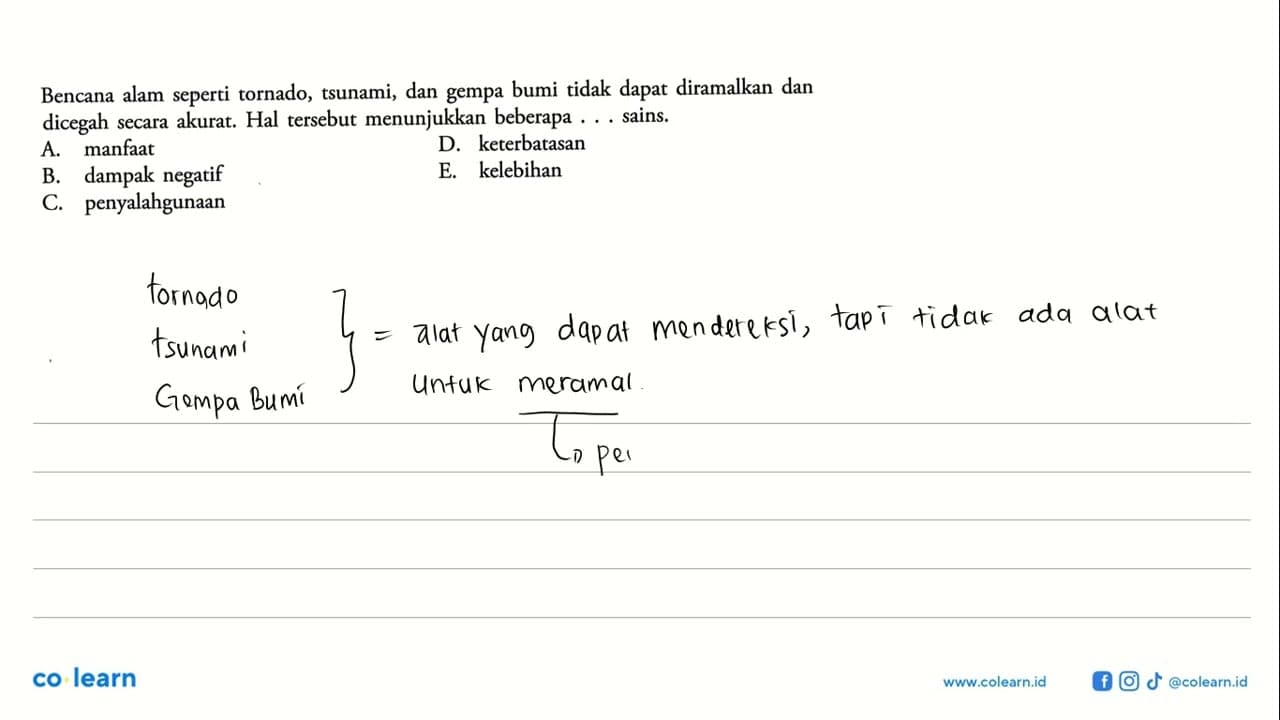 Bencana alam seperti tornado, tsunami, dan gempa bumi tidak dapat diramalkan dan
dicegah secara akurat. Hal tersebut menunjukkan beberapa . . . sains.
A. manfaat
B. dampak negatif
C. penyalahgunaan
D. keterbatasan
E. kelebihan
tornado
tsunami
Gempa Bumi
= alat yang dapat mendereksi, tapi tidak ada alat
untuk meramal.
pe
co learn
www.colearn.id
@colearn.id